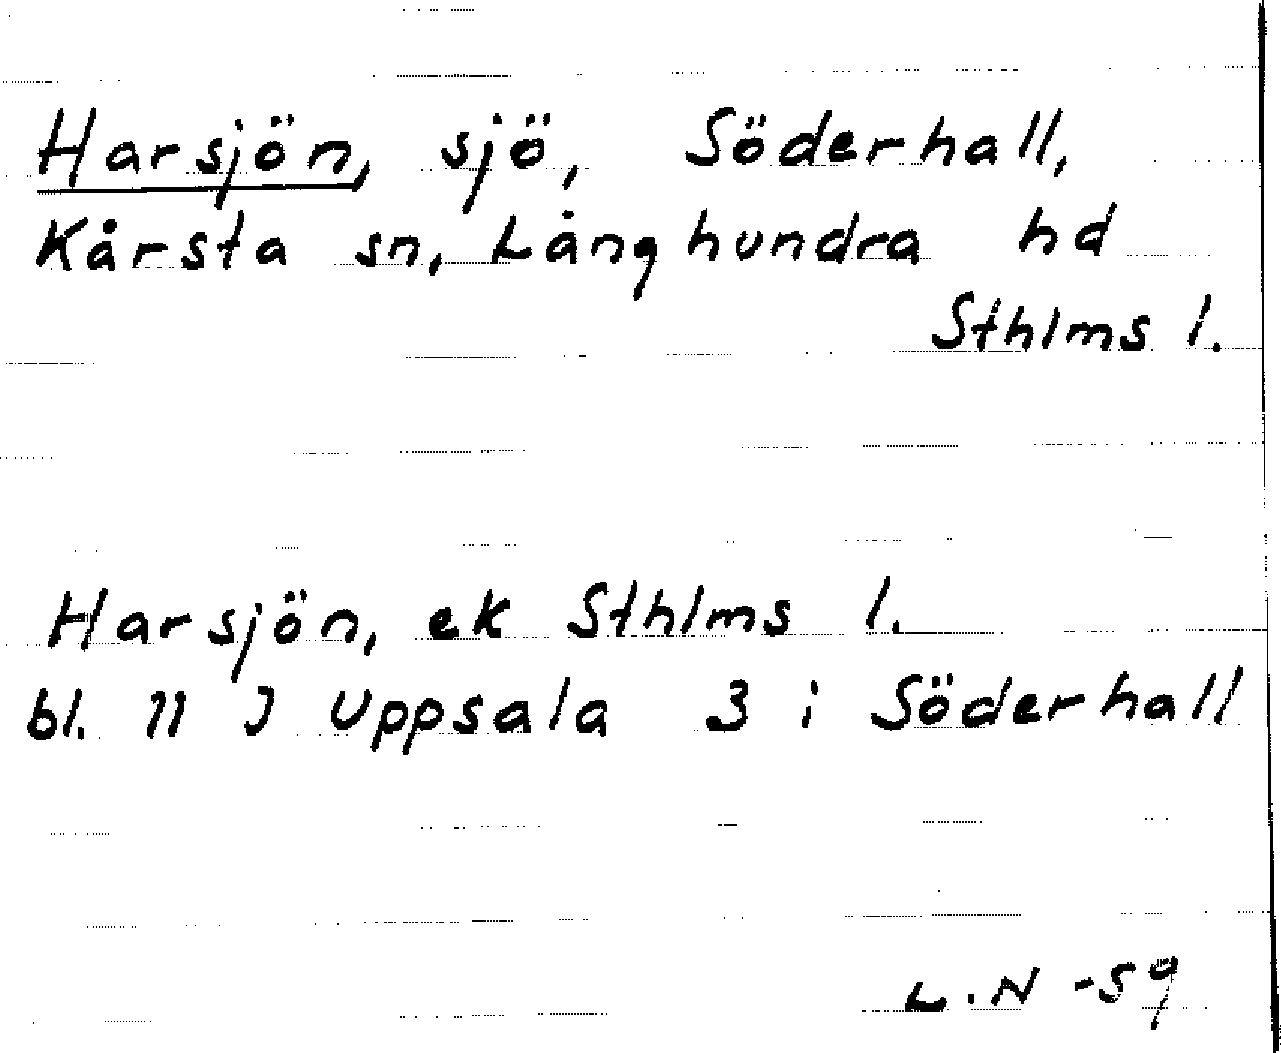 Harsjön, sjö, Söderhall,
Kårsta sn, Långhundra hd
Sthlms l.
Harsjön, ek Sthlms l.
bl. 11 J Uppsala 3 i Söderhall
L.N -59